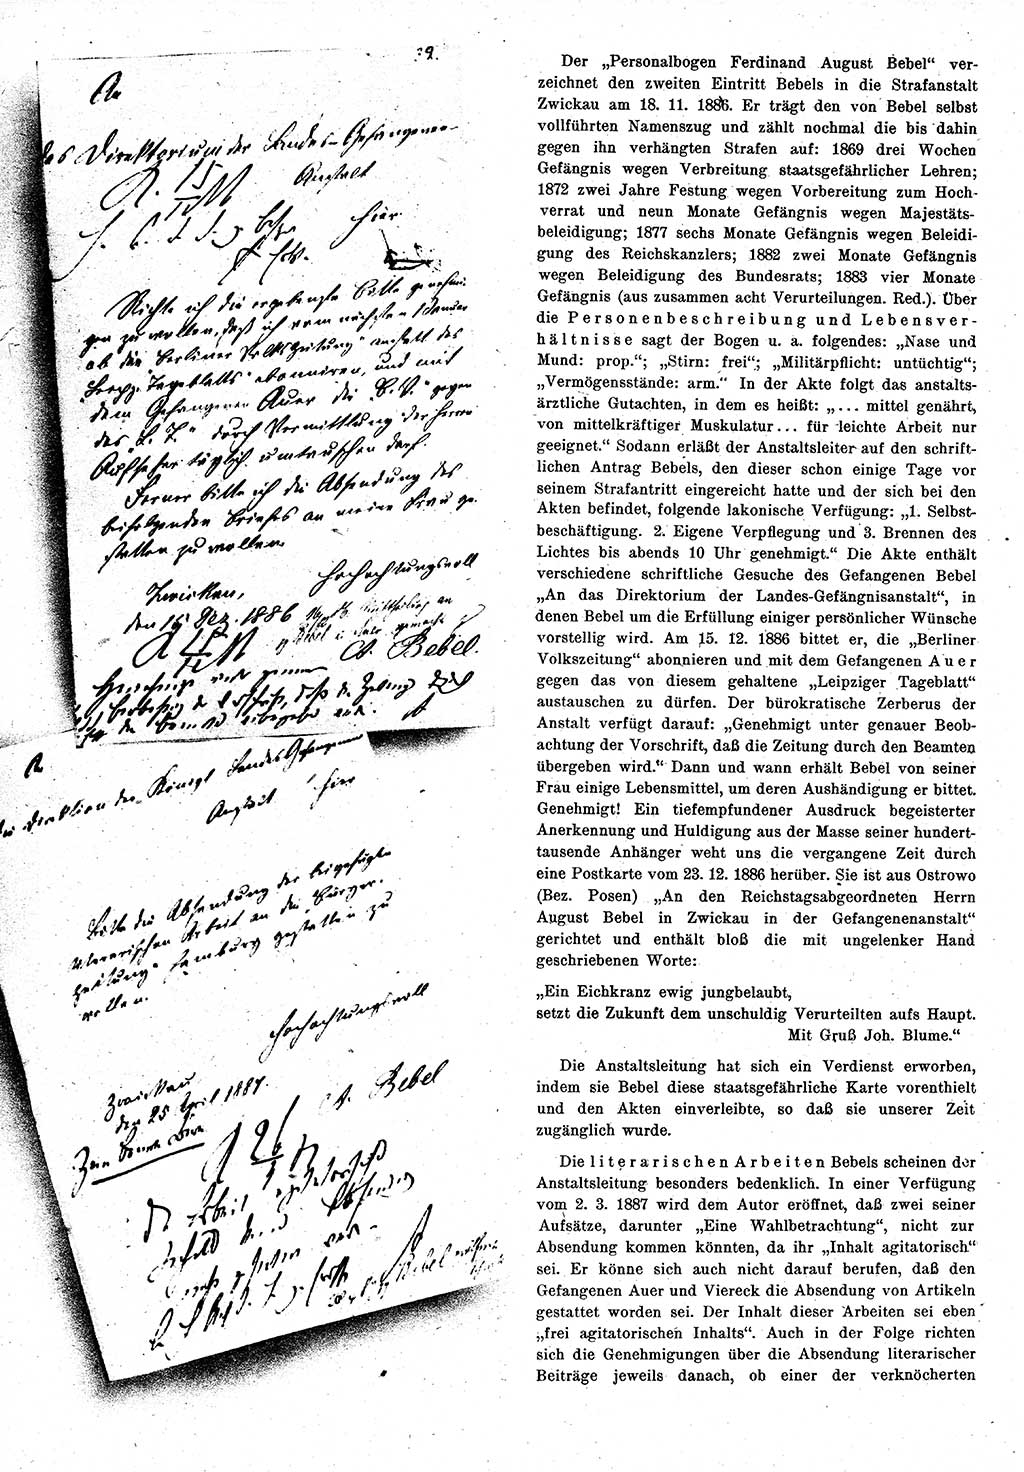 39.
An
das Direktorium der Landes-Gefangenen-
Anstalt
hier.
Möchte ich die ergebenste Bitte genehmi-
gen zu wollen, daß ich vom nächsten Januar
ab die „Berliner Volkszeitung“ anstatt des
„Leipz. Tageblatts“ abonniren, und mit
dem Gefangenen Auer die „B. V.“ gegen
das „L. T.“ durch Vermittlung der Herrn
Aufseher täglich umtauschen darf.
Ferner bitte ich die Absendung des
beifolgenden Briefes an meine Frau ge-
statten zu wollen.
Hochachtungsvoll
Zwickau,
den 15 Dez. 1886
A. Bebel.
An
die Direktion der Königl Landes Gefangenen
Anstalt hier
Bitte die Absendung der beigefügten
literarischen Arbeit an die „Bürger-
zeitung“ Hamburg gestatten zu
wollen.
Hochachtungsvoll
A. Bebel
Zwickau
den 25 April 1887.
Der „Personalbogen Ferdinand August Bebel“ ver-
zeichnet den zweiten Eintritt Bebels in die Strafanstalt
Zwickau am 18. 11. 1886. Er trägt den von Bebel selbst
vollführten Namenszug und zählt nochmal die bis dahin
gegen ihn verhängten Strafen auf: 1869 drei Wochen
Gefängnis wegen Verbreitung staatsgefährlicher Lehren;
1872 zwei Jahre Festung wegen Vorbereitung zum Hoch-
verrat und neun Monate Gefängnis wegen Majestäts-
beleidigung; 1877 sechs Monate Gefängnis wegen Beleidi-
gung des Reichskanzlers; 1882 zwei Monate Gefängnis
wegen Beleidigung des Bundesrats; 1883 vier Monate
Gefängnis (aus zusammen acht Verurteilungen. Red.). Über
die Personenbeschreibung und Lebensver-
hältnisse sagt der Bogen u. a. folgendes: „Nase und
Mund: prop.“; „Stirn: frei“; „Militärpflicht: untüchtig“;
„Vermögensstände: arm.“ In der Akte folgt das anstalts-
ärztliche Gutachten, in dem es heißt: „... mittel genährt,
von mittelkräftiger Muskulatur... für leichte Arbeit nur
geeignet.“ Sodann erläßt der Anstaltsleiter auf den schrift-
lichen Antrag Bebels, den dieser schon einige Tage vor
seinem Strafantritt eingereicht hatte und der sich bei den
Akten befindet, folgende lakonische Verfügung: „1. Selbst-
beschäftigung. 2. Eigene Verpflegung und 3. Brennen des
Lichtes bis abends 10 Uhr genehmigt.“ Die Akte enthält
verschiedene schriftliche Gesuche des Gefangenen Bebel
„An das Direktorium der Landes-Gefängnisanstalt“, in
denen Bebel um die Erfüllung einiger persönlicher Wünsche
vorstellig wird. Am 15. 12. 1886 bittet er, die „Berliner
Volkszeitung“ abonnieren und mit dem Gefangenen Auer
gegen das von diesem gehaltene „Leipziger Tageblatt“
austauschen zu dürfen. Der bürokratische Zerberus der
Anstalt verfügt darauf: „Genehmigt unter genauer Beob-
achtung der Vorschrift, daß die Zeitung durch den Beamten
übergeben wird.“ Dann und wann erhält Bebel von seiner
Frau einige Lebensmittel, um deren Aushändigung er bittet.
Genehmigt! Ein tiefempfundener Ausdruck begeisterter
Anerkennung und Huldigung aus der Masse seiner hundert-
tausende Anhänger weht uns die vergangene Zeit durch
eine Postkarte vom 23. 12. 1886 herüber. Sie ist aus Ostrowo
(Bez. Posen) „An den Reichstagsabgeordneten Herrn
August Bebel in Zwickau in der Gefangenenanstalt“
gerichtet und enthält bloß die mit ungelenker Hand
geschriebenen Worte:
„Ein Eichkranz ewig jungbelaubt,
setzt die Zukunft dem unschuldig Verurteilten aufs Haupt.
Mit Gruß Joh. Blume.“
Die Anstaltsleitung hat sich ein Verdienst erworben,
indem sie Bebel diese staatsgefährliche Karte vorenthielt
und den Akten einverleibte, so daß sie unserer Zeit
zugänglich wurde.
Die literarischen Arbeiten Bebels scheinen der
Anstaltsleitung besonders bedenklich. In einer Verfügung
vom 2. 3. 1887 wird dem Autor eröffnet, daß zwei seiner
Aufsätze, darunter „Eine Wahlbetrachtung“, nicht zur
Absendung kommen könnten, da ihr „Inhalt agitatorisch“
sei. Er könne sich auch nicht darauf berufen, daß den
Gefangenen Auer und Viereck die Absendung von Artikeln
gestattet worden sei. Der Inhalt dieser Arbeiten sei eben
„frei agitatorischen Inhalts“. Auch in der Folge richten
sich die Genehmigungen über die Absendung literarischer
Beiträge jeweils danach, ob einer der verknöcherten